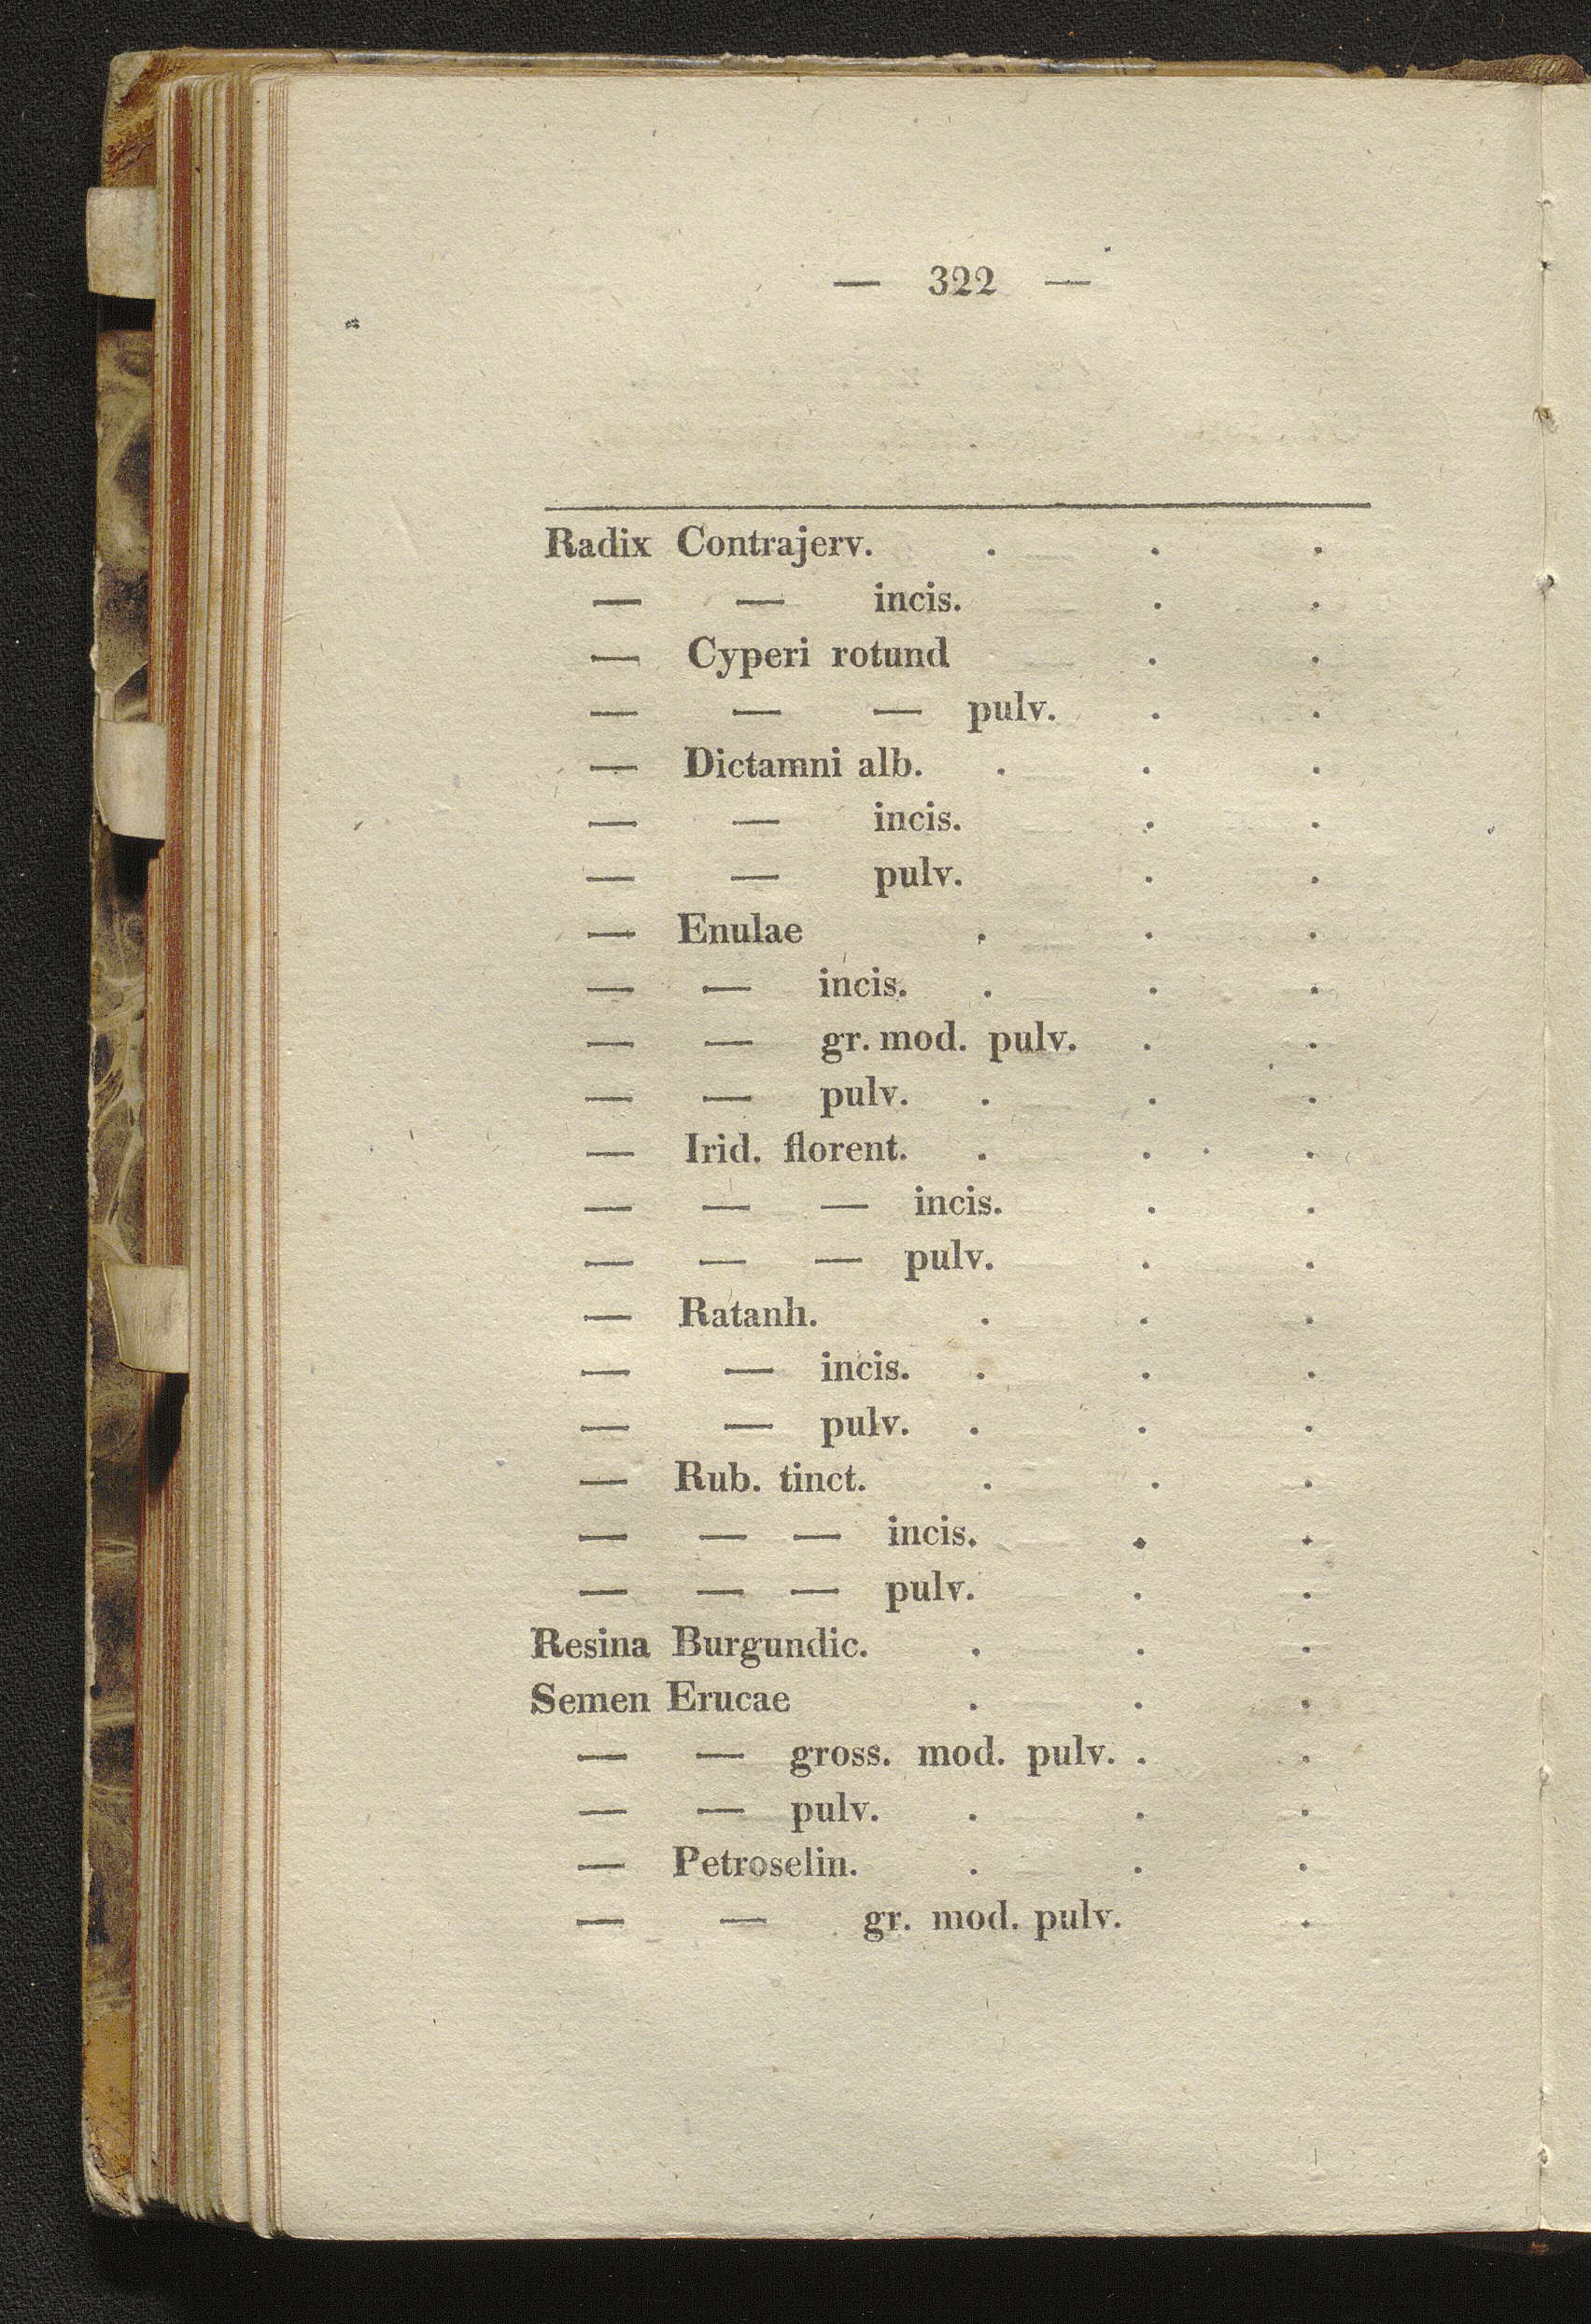 — 322 —
Radix Contrajerv. . . .
— — incis. . .
— Cyperi rotund . .
— — — pulv. . .
— Dictamni alb. . . .
— — incis. . .
— — pulv. . .
— Enulae . . .
— — incis. . . .
— — gr. mod. pulv. . .
— — pulv. . . .
— Irid. florent. . . .
— — — incis. . .
— — — pulv. . .
— Ratanh. . . .
— — incis. . . .
— — pulv. . . .
— Rub. tinct. . . .
— — — incis. . .
— — — pulv. . .
Resina Burgundic. . . .
Semen Erucae . . .
— — gross. mod. pulv. . .
— — pulv. . . .
— Petroselin. . . .
— — gr. mod. pulv. .